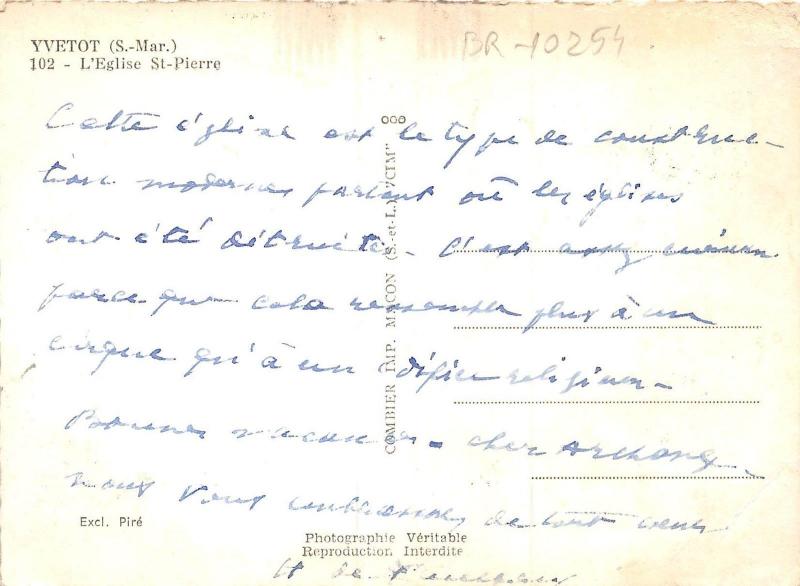 BR-10254
YVETOT (S.-Mar.)
102 - L'Eglise St-Pierre
Cette église est le type de construc-
tion modernes partout où les églises
ont été détruites - C'est assez curieux
parce que cela ressemple plus à un
cirque qu'à un édifice religieux -
Bonnes vacances - cher
nous vous embrassons de tout cœur
et de
COMBIER IMP. MACON (S.-et-L.) "CIM"
Excl. Piré
Photographie Véritable
Reproduction Interdite